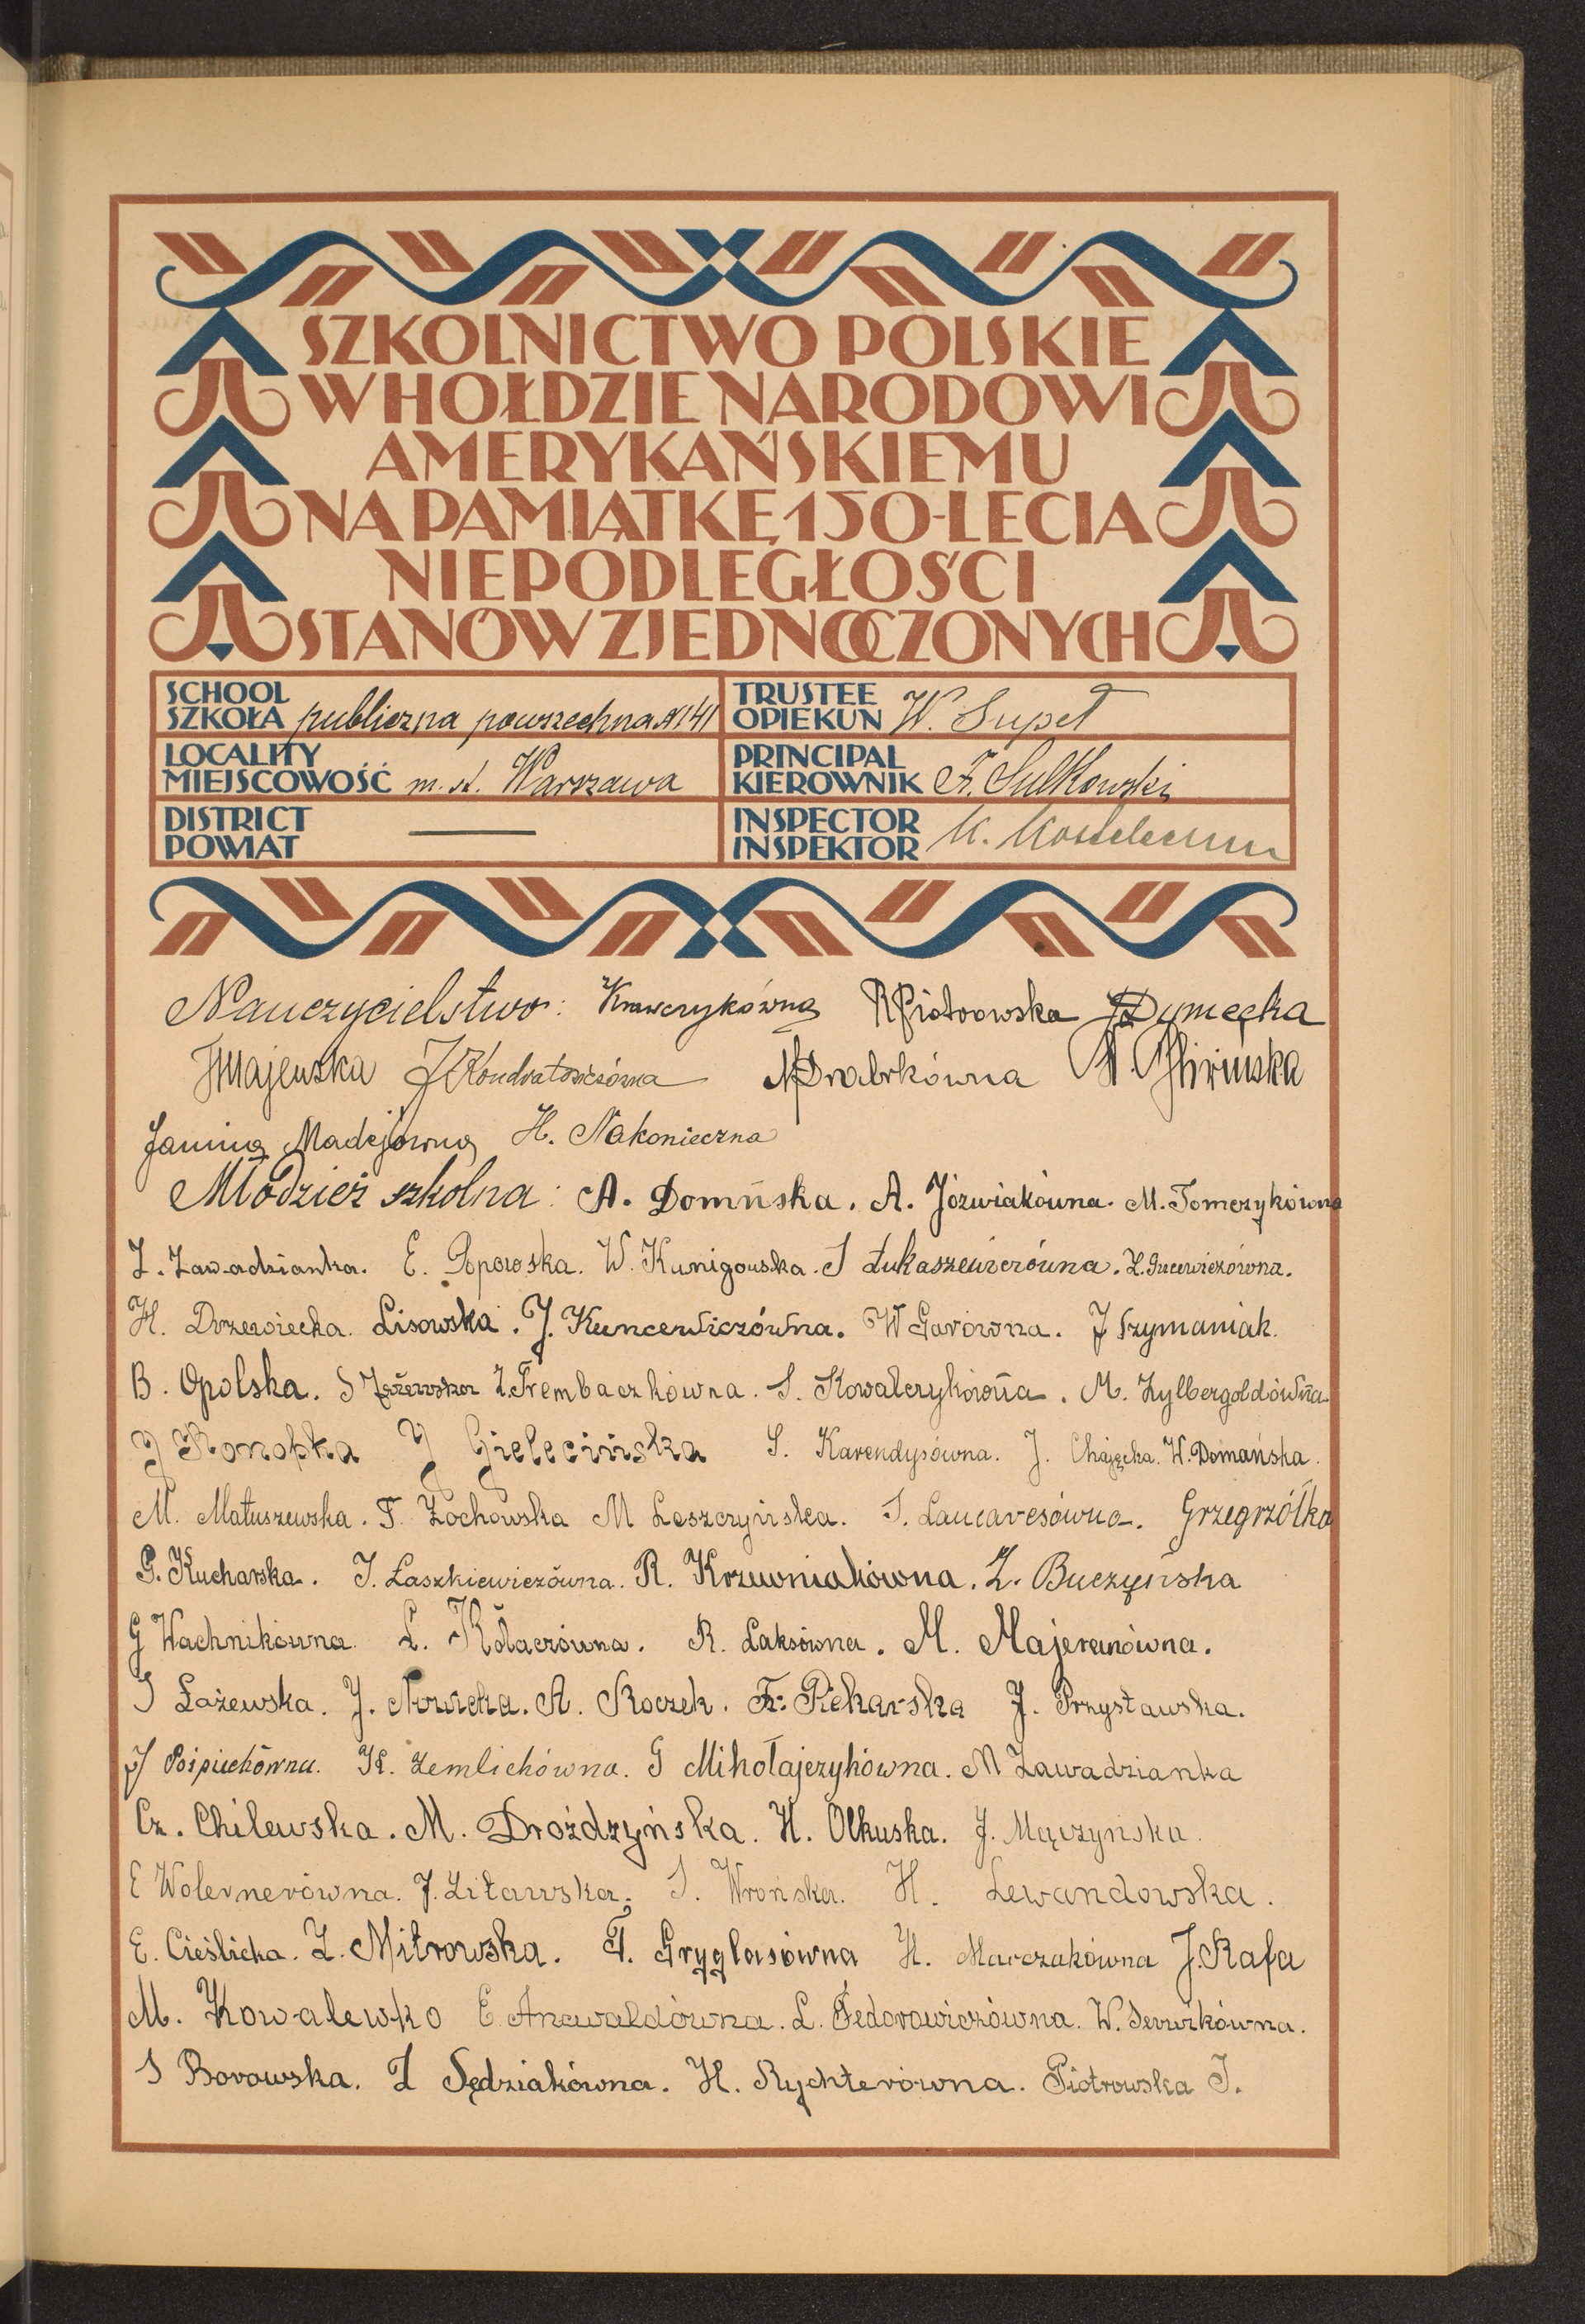 SZKOLNICTWO POLSKIE
W HOŁDZIE NARODOWI
AMERYKAŃSKIEMU
NA PAMIĄTKĘ 150-LECIA
NIEPODLEGŁOŚCI
STANÓW ZJEDNOCZONYCH
SCHOOL
SZKOŁA publiczna powszechna № 141
TRUSTEE
OPIEKUN W. Supeł
LOCALITY
MIEJSCOWOŚĆ m. st. Warszawa
PRINCIPAL
KIEROWNIK F. Sulkowski
DISTRICT
POWIAT
INSPECTOR
INSPEKTOR K.
Nauczycielstwo: Krawczykówna R Piotrowska Dymecka
J Majewska J Kondratowiczówna M Drabikówna
Janina Madejówna H. Nakonieczna
Młodzież szkolna: A. Domńska. A. Józwiakówna. M. Tomczykówna
Z. Zawadzianka. E. Popowska. W. Kunigowska. I Łukaszewiczówna. Z. Gucewiczówna.
H. Drzewiecka. Lisowska. J. Kuncewiczówna. W Garówna. J Szymaniak.
B. Opolska. S Zażewska Z. Trembaczkówna. S. Kowalczykówna. M. Zylbergoldówna
J Konopka J Gielecińska S. Karendysówna. J. Chajęcka. W. Domańska.
M. Matuszewska. F. Żochowska M Leszczyńska. I. Grzegrzółka
G. Kucharska. I. Laszkiewiczówna. R. Krzewniakówna. Z. Buczyńska
G Wachnikówna. L. Kołaczówna. R. Laksówna. M. Majeranówna.
I Łażewska. J. Nowicka. A. Skoczek. Fr. Piekarska J. Przystawska.
J Pośpiechówna. K. Zemlichówna. G Mikołajczykówna. M Zawadzianka
Cz. Chilewska. M. Drożdzyńska. H. Olkuska. J. Mączyńska.
E Wolernerówna. J. Litawska. I. Wrońska. H. Lewandowska.
E. Cieślicka. Z. Mitrowska. T. Gryglasówna H. Marczakówna J. Rafa
M. Kowalewko E. Anewaldówna. L. Fedorowiczówna. W. Serwikówna.
I Borowska. Z Sędziakówna. H. Rychterówna. Piotrowska I.